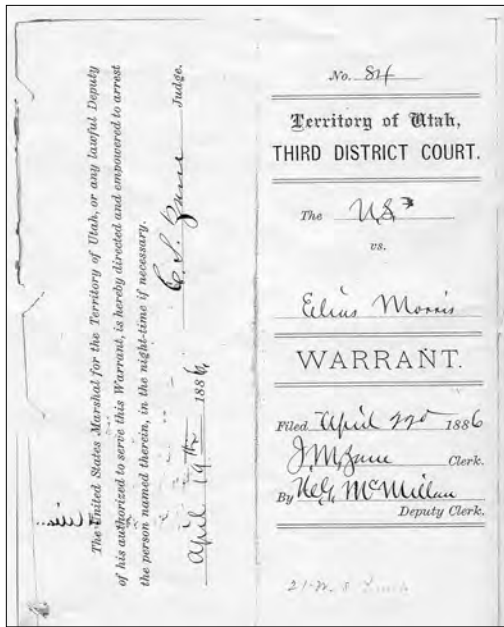 The United States Marshal for the Territory of Utah, or any lawful Deputy
of his authorized to serve this Warrant, is hereby directed and empowered to arrest
the person named therein, in the night-time if necessary.
C. S. Zane Judge.
April 19th 1886
No. 84
Territory of Utah,
THIRD DISTRICT COURT.
The U.S.
vs.
Elias Morris
WARRANT.
Filed April 22d 1886
J M Zane Clerk.
By H G McMillan
Deputy Clerk.